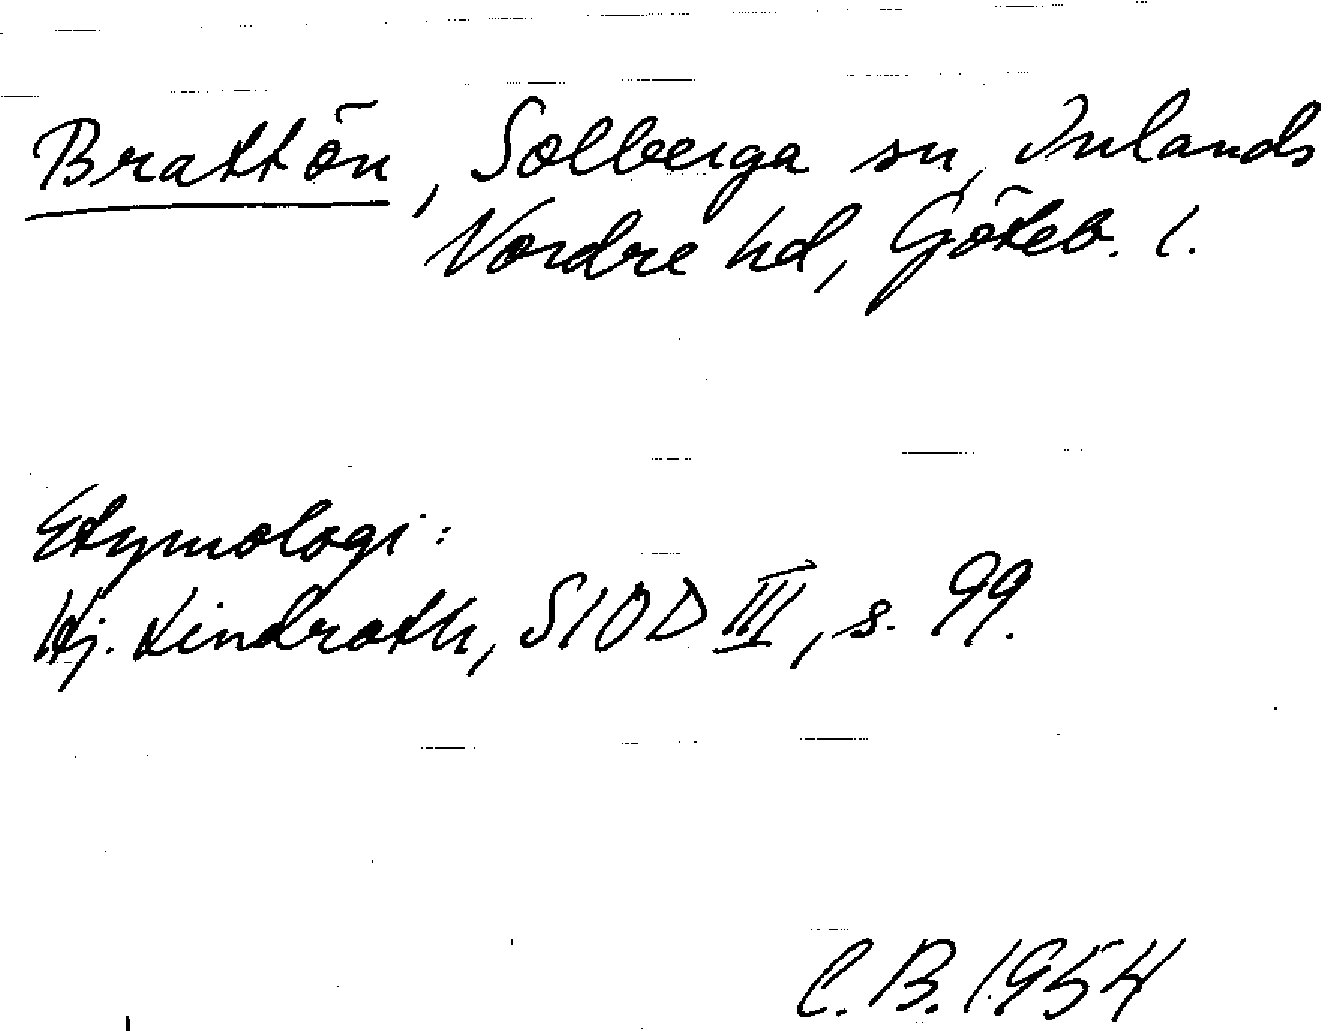 Brattön, Solberga sn, Inlands
Nordre hd, Göteb. l.
Etymologi:
Hj. Lindroth, SIOD III, s. 99.
C. B. 1954